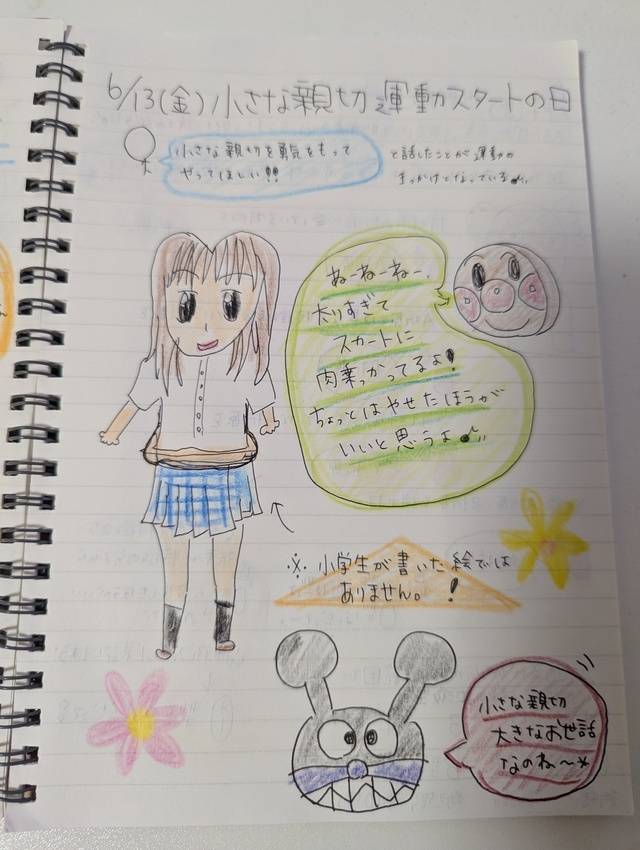 6/13(金)小さな親切運動スタートの日
小さな親切を勇気をもって
やってほしい!!
と話したことが運動の
きっかけとなっている♪
ねーねーねー、
太りすぎて
スカートに
肉乗っかってるよ!
ちょっとはやせたほうが
いいと思うよ♪
※ 小学生が書いた絵では
ありません。!
小さな親切
大きなお世話
なのね〜*